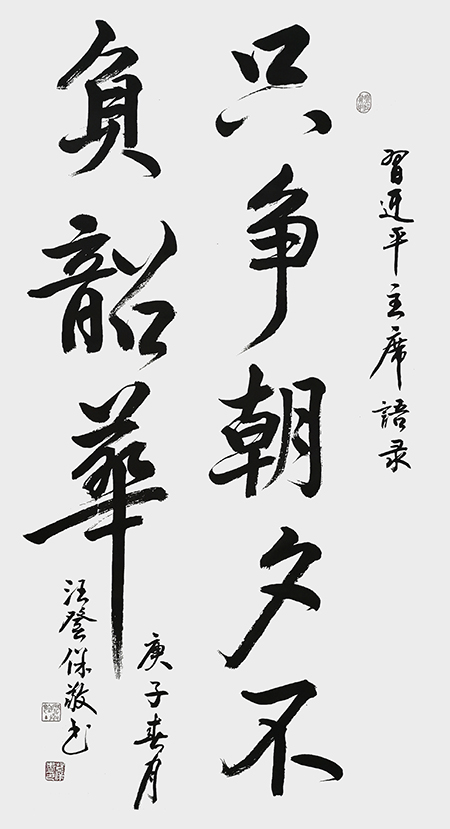 習近平主席語录
只争朝夕不
負韶華
庚子春月
汪登保敬书